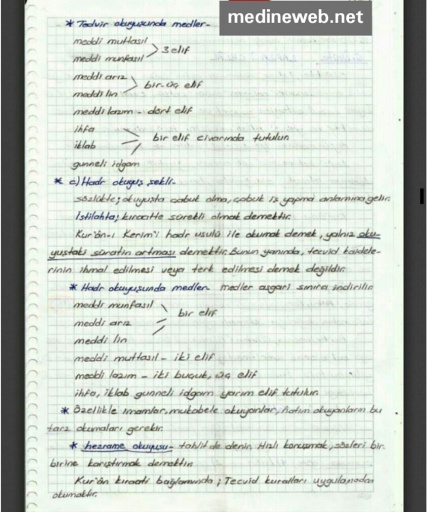 medineweb.net
* Tedvir okuyuşunda medler-
meddi muttasıl
3 elif
meddi munfasıl
meddi arız
bir-üç elif
meddi lin
meddi lazım - dört elif
ihfa
iklab
bir elif civarında tutulur.
gunneli idgam
* c) Hadr okuyuş şekli-
sözlükte; okuyuşta çabuk olma, çabuk iş yapma anlamına gelir.
Istılahta; kıraatte süratli olmak demektir.
Kur'ân-ı Kerim'i hadr usulü ile okumak demek, yalnız oku-
yuştaki süratin artması demektir. Bunun yanında, tecvid kaidele-
rinin ihmal edilmesi veya terk edilmesi demek değildir.
* Hadr okuyuşunda medler- medler asgari sınıra indirilir.
meddi munfasıl
meddi arız
bir elif
meddi lin
meddi muttasıl - iki elif
meddi lazım - iki buçuk, üç elif
ihfa, iklab gunneli idgam yarım elif tutulur.
* Özellikle imamlar, mukabele okuyanlar, hatim okuyanların bu
tarz okumaları gerekir.
* hezrame okuyuşu- tahlil de denir. Hızlı konuşmak, sözleri bir-
birine karıştırmak demektir.
Kur'ân kıraati bağlamında; Tecvid kuralları uygulanmadan
okumaktır.